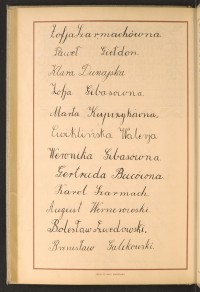 Zofja Szarmachówna
Paweł Gieldon.
Klara Dunajska
Zofja Gibasówna.
Marta Kupczykówna.
Ewiklińska Walerja
Weronika Gibasówna.
Gertruda Bucówna.
Karol Szarmach.
August Wernerowski.
Bolesław Zawodowski.
Bronisław Zalekowski.